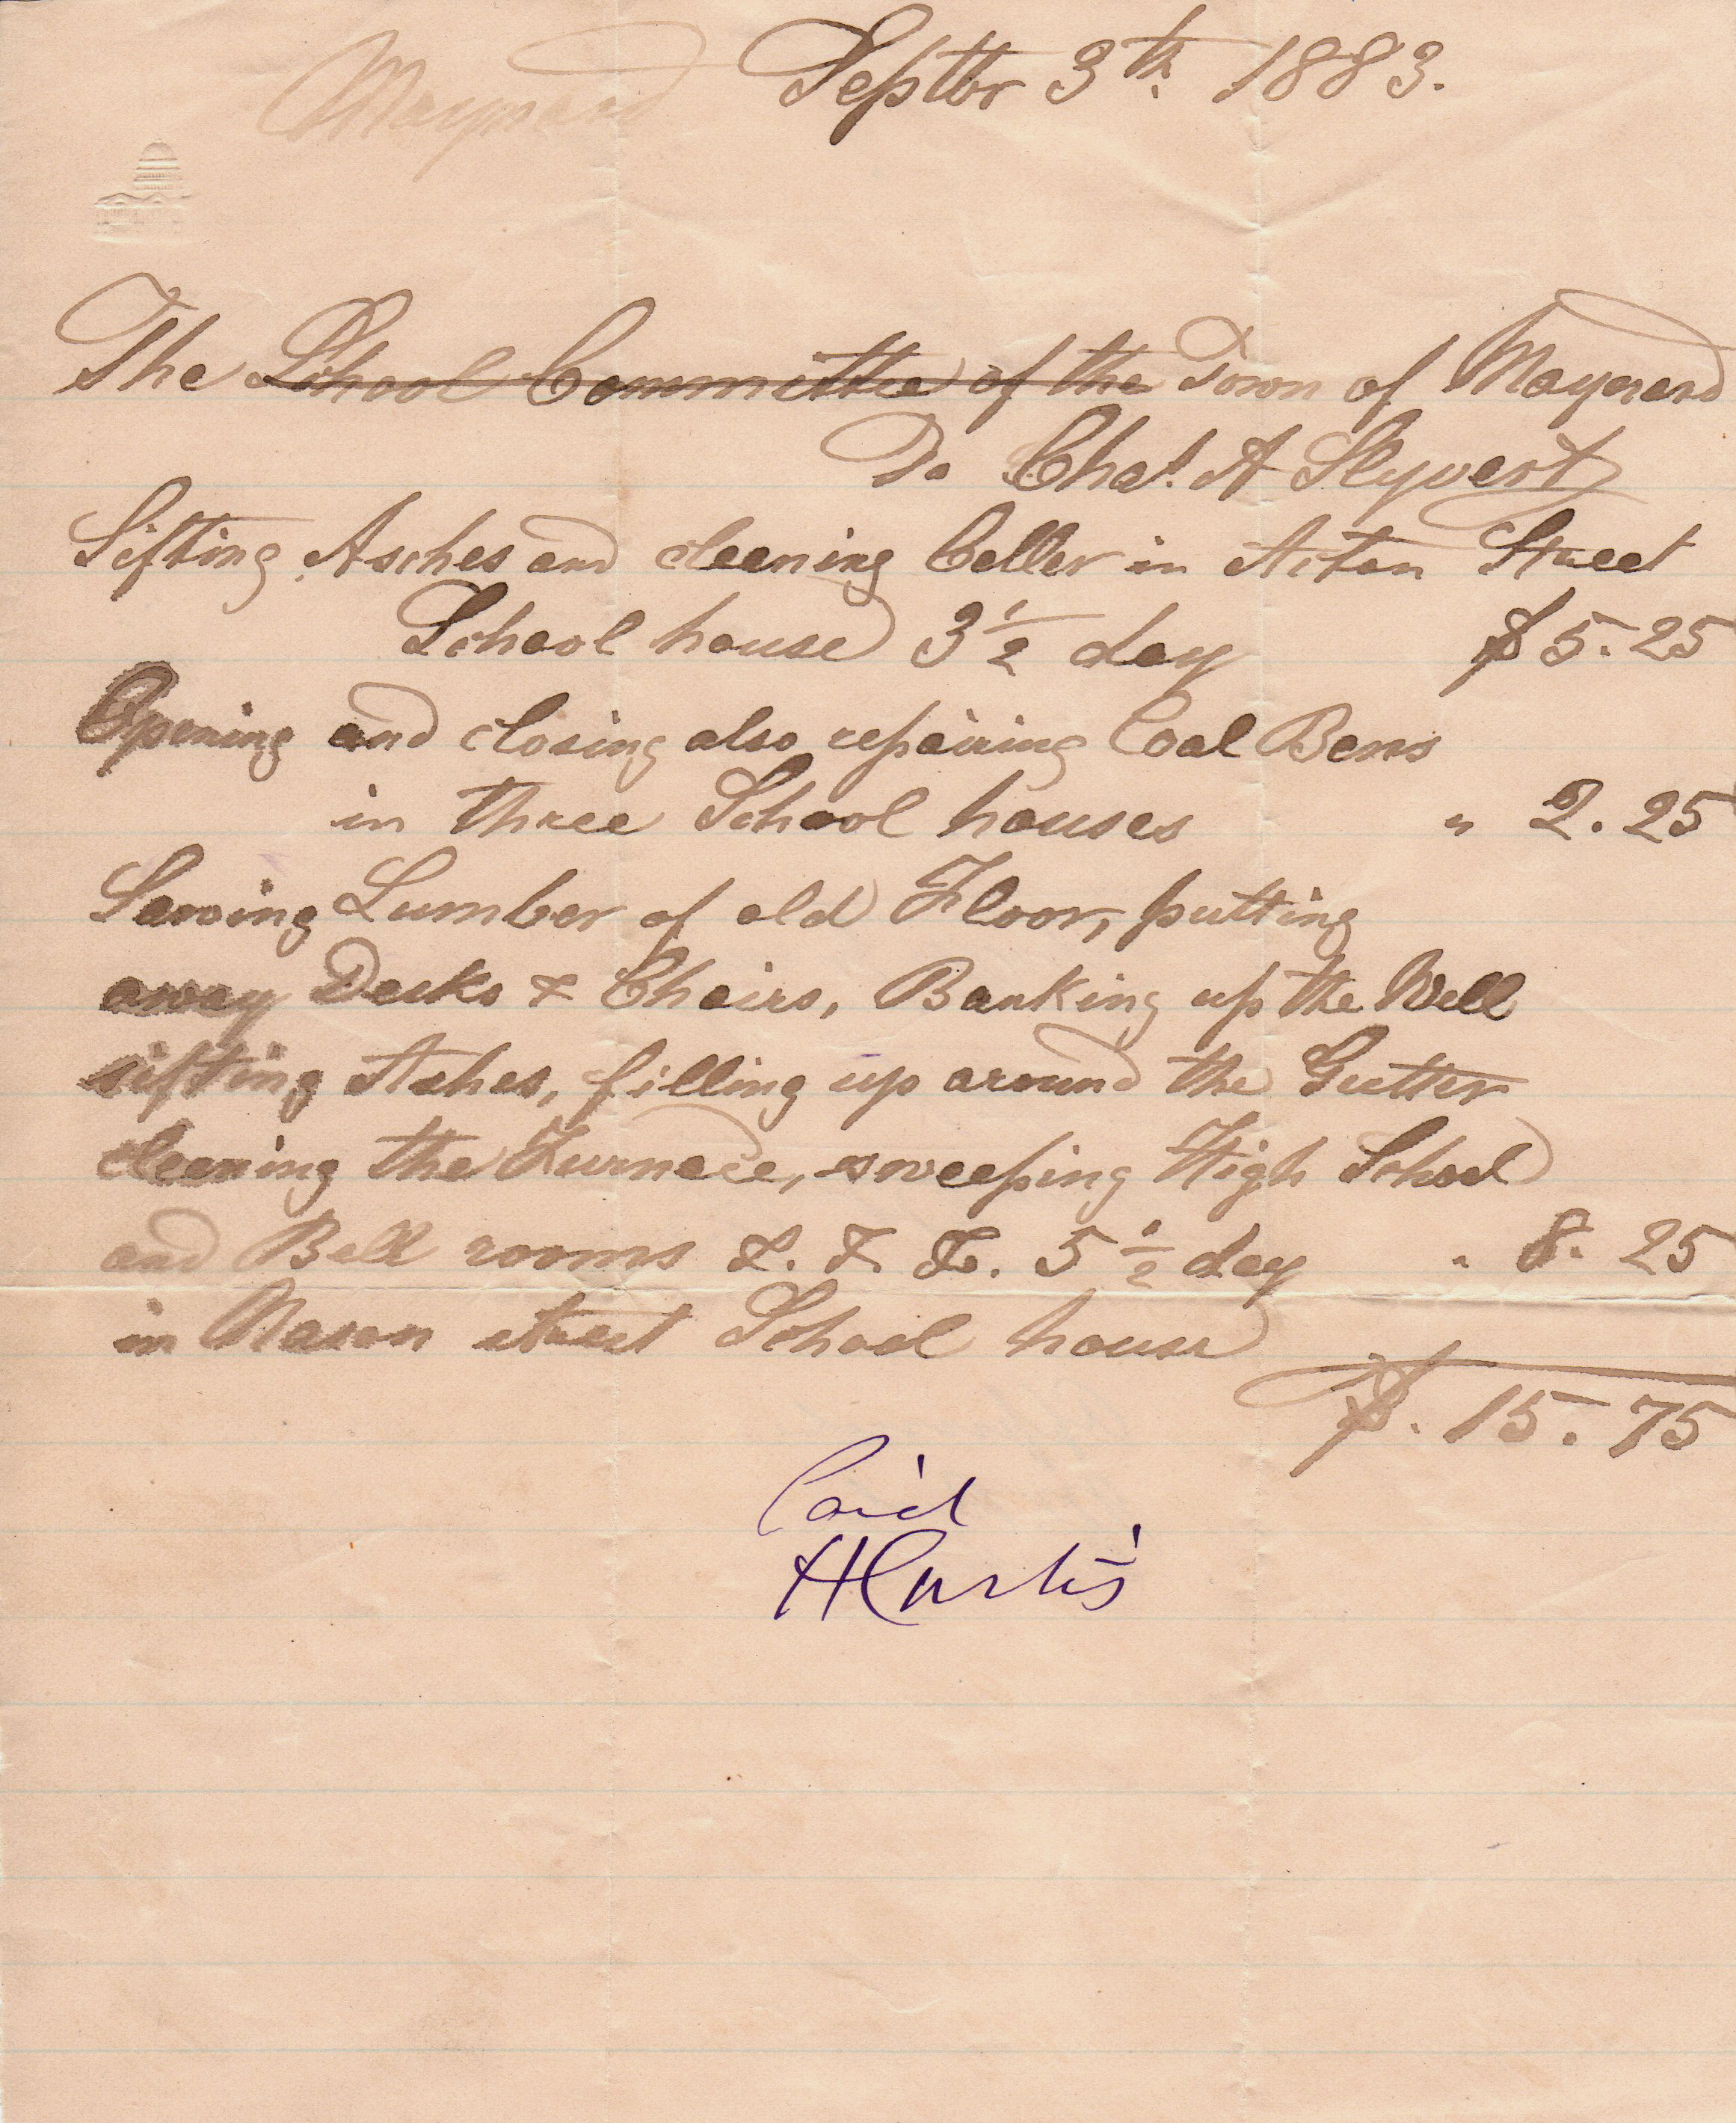 Maynard Septbr 3th. 1883.
The School Committee of the Town of Maynard
To Chas. A Slyvert
Sifting Asches and cleaning Celler in Acton Street
School house 3 1/2 day $ 5.25
Opening and closing also repairing Coal Bens
in three School houses " 2.25
Sawing Lumber of old Floor, putting
away Desks & Chairs, Banking up the Well
sifting Ashes, filling up around the Gutter
cleaning the Furnace, sweeping High School
and Bell rooms &. &. &. 5 1/2 day " 8.25
in Nason street School house
$. 15.75
Paid
H Curtis